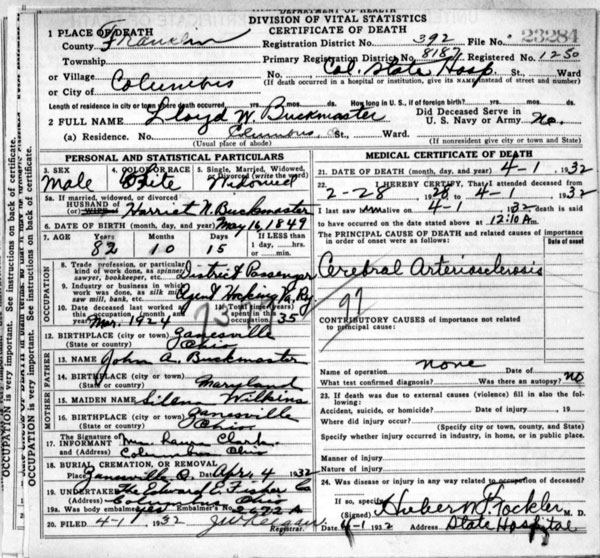 DEPARTMENT OF HEALTH
DIVISION OF VITAL STATISTICS
CERTIFICATE OF DEATH
1 PLACE OF DEATH
County Franklin Registration District No. 392 File No. 23284
Township Primary Registration District No. 8187 Registered No. 1250
or Village No. Col. State Hosp. St., Ward
or City of Columbus (If death occurred in a hospital or institution, give its NAME instead of street and number)
Length of residence in city or town where death occurred yrs. mos. ds. How long in U. S., if of foreign birth? yrs. mos. ds.
2 FULL NAME Lloyd W. Buckmaster Did Deceased Serve in U. S. Navy or Army No.
(a) Residence. No. Columbus O. St., Ward.
(Usual place of abode) (If nonresident give city or town and State)
PERSONAL AND STATISTICAL PARTICULARS
3. SEX Male 4. COLOR OR RACE White 5. Single, Married, Widowed, or Divorced (write the word) Widowed
5a. If married, widowed or divorced
HUSBAND of
(or) Harriet N. Buckmaster
6. DATE OF BIRTH (month, day, and year) May 16, 1849
7. AGE Years 82 Months 10 Days 15 If LESS than 1 day, hrs. or min.
OCCUPATION
8. Trade, profession, or particular kind of work done, as spinner, sawyer, bookkeeper, etc. District Passenger
9. Industry or business in which work was done, as silk mill, saw mill, bank, etc. Agent Hocking Va. Ry
10. Date deceased last worked at this occupation (month and year) Mar. 1924 11. Total time (years) spent in this occupation 35
12. BIRTHPLACE (city or town) Zanesville
(State or country) Ohio
FATHER
13. NAME John A. Buckmaster
14. BIRTHPLACE (city or town)
(State or country) Maryland
MOTHER
15. MAIDEN NAME Wilkins
16. BIRTHPLACE (city or town) Zanesville
(State or country) Ohio
17. The Signature of INFORMANT Mrs. Laura Clark
and (Address) Columbus Ohio
18. BURIAL, CREMATION, OR REMOVAL
Place Zanesville O. Date Apr 4 1932
19. UNDERTAKER The Edward E. Fisher Co
(Address) Columbus Ohio
19a. Was body embalmed yes Embalmer's No. 2672 A
20. FILED 4-1, 1932 Registrar.
MEDICAL CERTIFICATE OF DEATH
21. DATE OF DEATH (month, day, and year) 4-1, 1932
22. I HEREBY CERTIFY, That I attended deceased from
2-28, 1928 to 4-1, 1932
I last saw him alive on 4-1, 1932 death is said
to have occurred on the date stated above at 12:10 A.m.
The PRINCIPAL CAUSE OF DEATH and related causes in order of onset were as follows: Date of onset
Cerebral Arteriosclerosis
97
CONTRIBUTORY CAUSES of importance not related to principal cause:
none
Name of operation Date of
What test confirmed diagnosis? Was there an autopsy? no
23. If death was due to external causes (violence) fill in also the following:
Accident, suicide, or homicide? Date of injury , 19
Where did injury occur?
(Specify city or town, county, and State)
Specify whether injury occurred in industry, in home, or in public place
Manner of injury
Nature of injury
24. Was disease or injury in any way related to occupation of deceased?
If so, specify
(Signed) M. D.
Date 4-1 1932 Address State Hospital
OCCUPATION is very important. See instructions on back of certificate.